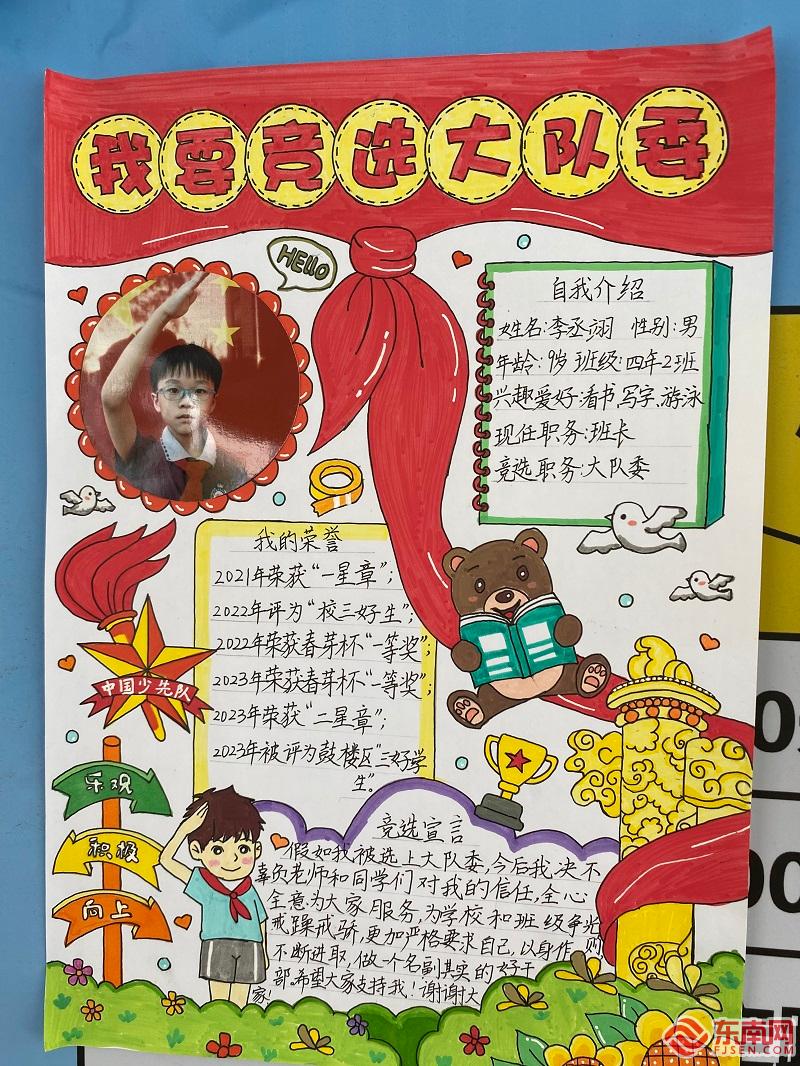 我要竞选大队委
HELLO
自我介绍
姓名:李丞翊 性别:男
年龄:9岁 班级:四年2班
兴趣爱好:看书、写字、游泳
现任职务:班长
竞选职务:大队委
我的荣誉
2021年荣获“一星章”;
2022年评为“校三好生”;
2022年荣获春芽杯“一等奖”;
2023年荣获春芽杯“一等奖”;
2023年荣获“二星章”;
2023年被评为鼓楼区“三好学
生”。
中国少先队
乐观
积极
向上
竞选宣言
假如我被选上大队委,今后我决不
辜负老师和同学们对我的信任,全心
全意为大家服务,为学校和班级争光
戒躁戒骄,更加严格要求自己,以身作则
不断进取,做一个名副其实的好干
部。希望大家支持我!谢谢大
家!
东南网
FJSEN.COM